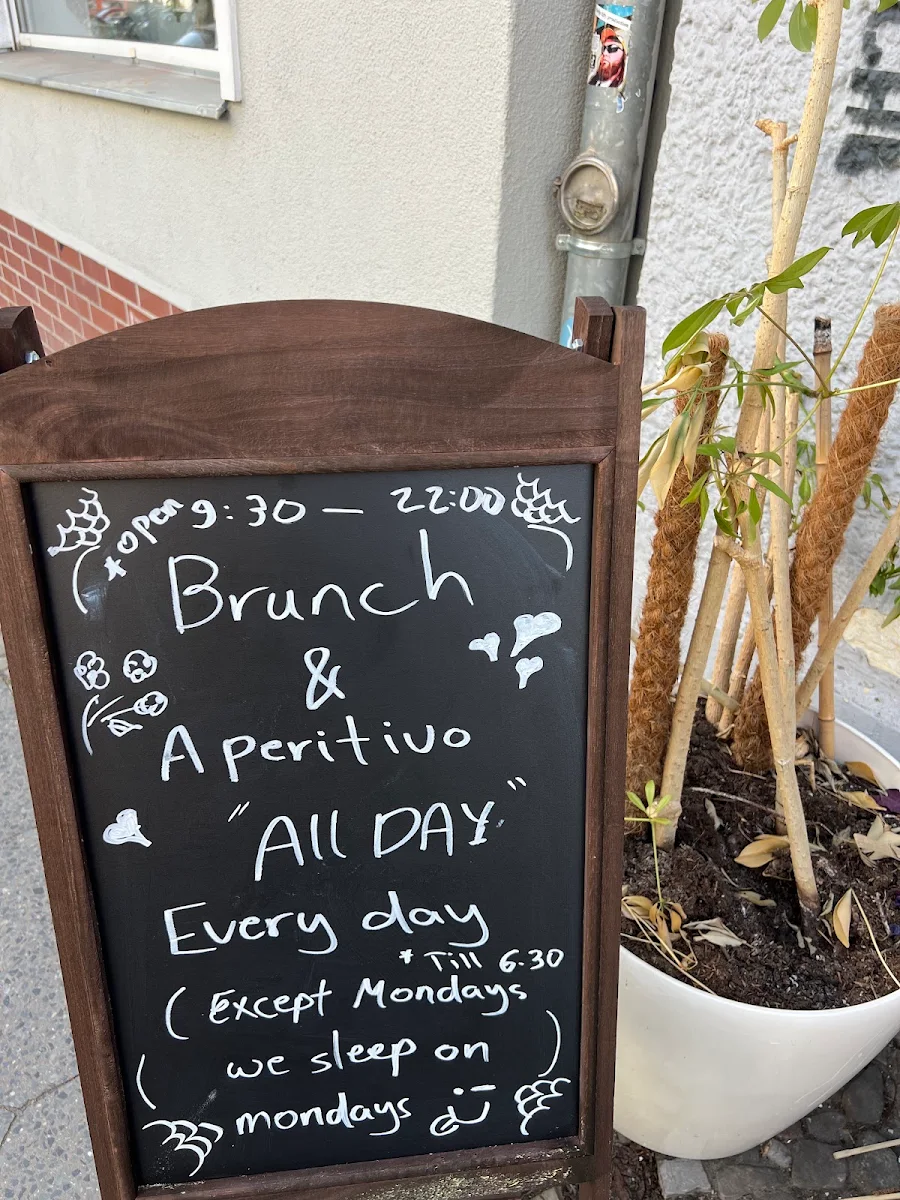 *open 9:30 — 22:00
Brunch
&
Aperitivo
"All DAY"
Every day
* Till 6.30
(Except Mondays
we sleep on
mondays )